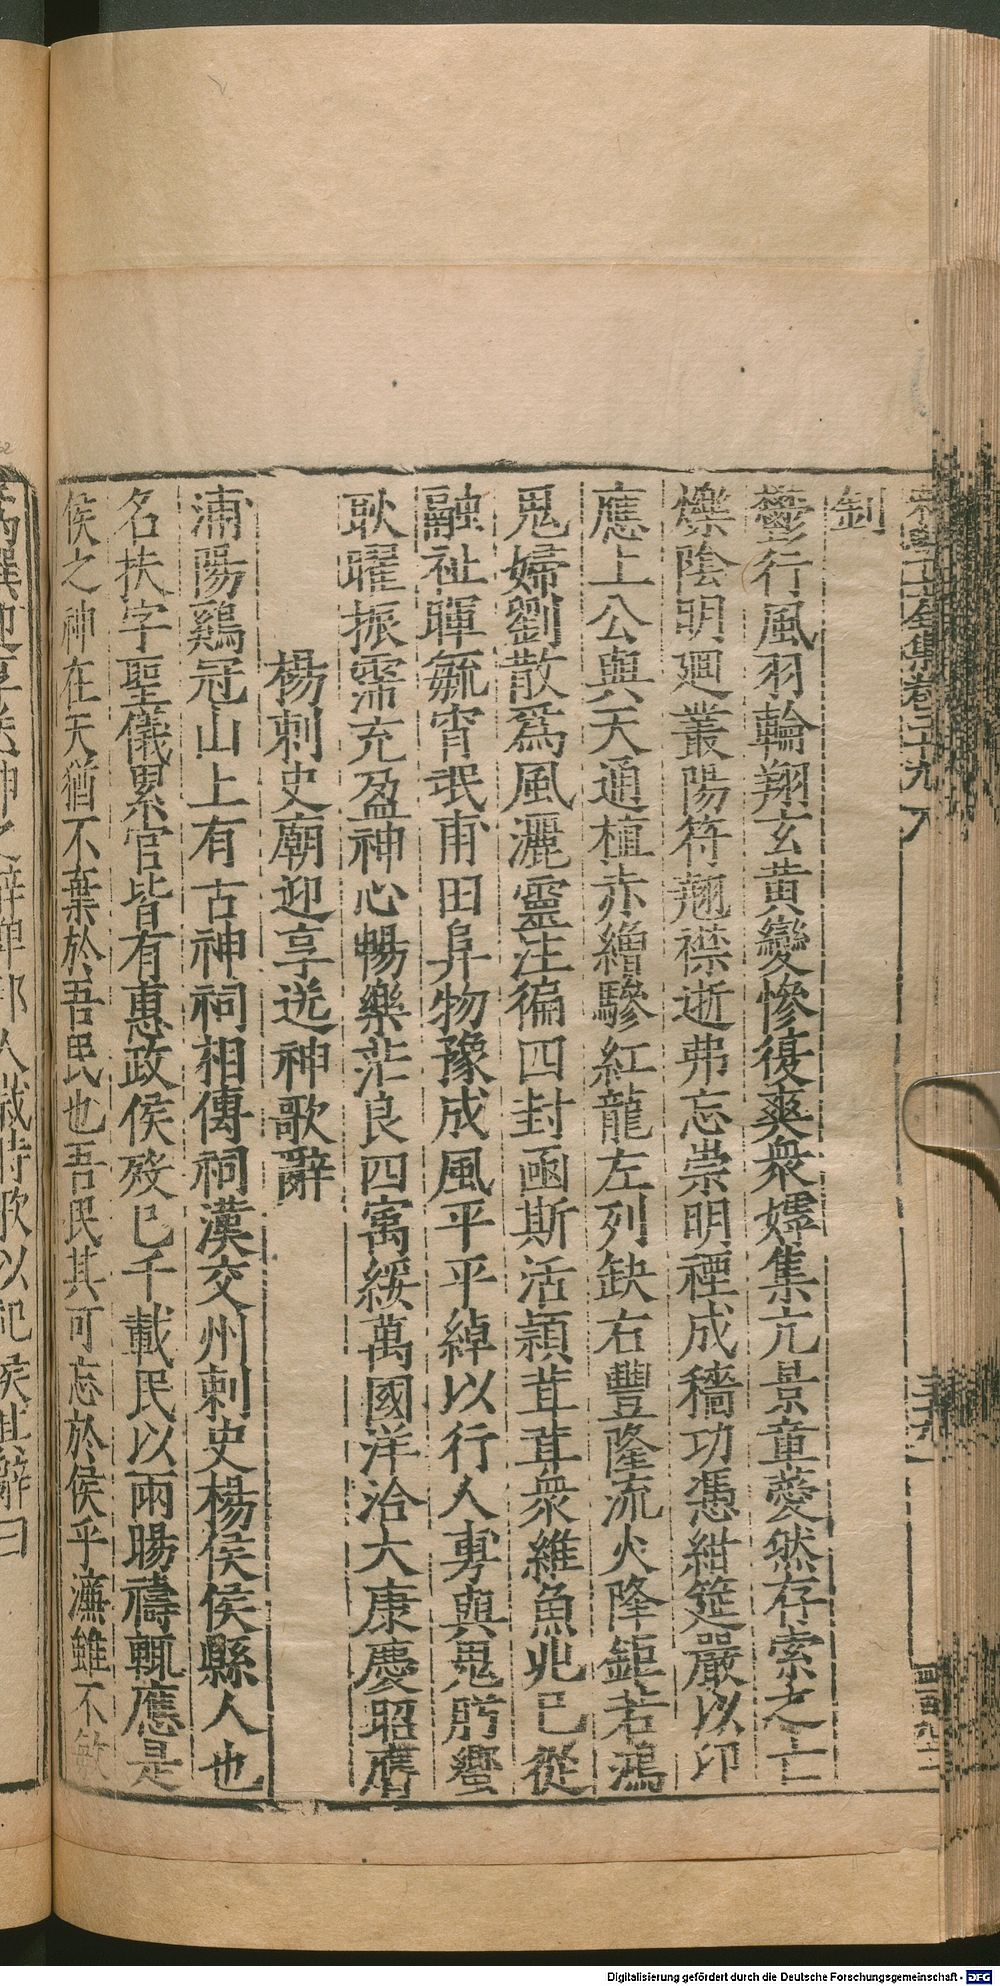 制
鬱行風羽輪翔玄黄變慘復爽衆嫮集亢景童薆然存索之亡
爍陰明廻叢陽符翔襟逝弗忘崇明禋成穡功慿紺筵嚴以卬
應上公與天通植赤繒驂紅龍左列缺右豐隆流火降鉅若鴻
鬼婦劉散爲風灑靈注徧四封函斯活頴茸茸衆維魚兆已從
融祉暉毓宵氓甫田阜物豫成風平平綽以行人專與鬼肸蠁
耿曜振霈充盈神心暢樂茫良四㝢綏萬國洋洽大康慶昭膺
楊刺史廟迎享送神歌辭
浦陽鷄冠山上有古神祠相傳祠漢交州刺史楊侯侯縣人也
名扶字聖儀累官皆有惠政侯歿已千載民以雨暘禱輒應是
侯之神在天猶不棄於吾民也吾民其可忘於侯乎濂雖不敏
全集卷三十九
Digitalisierung gefördert durch die Deutsche Forschungsgemeinschaft - DFG